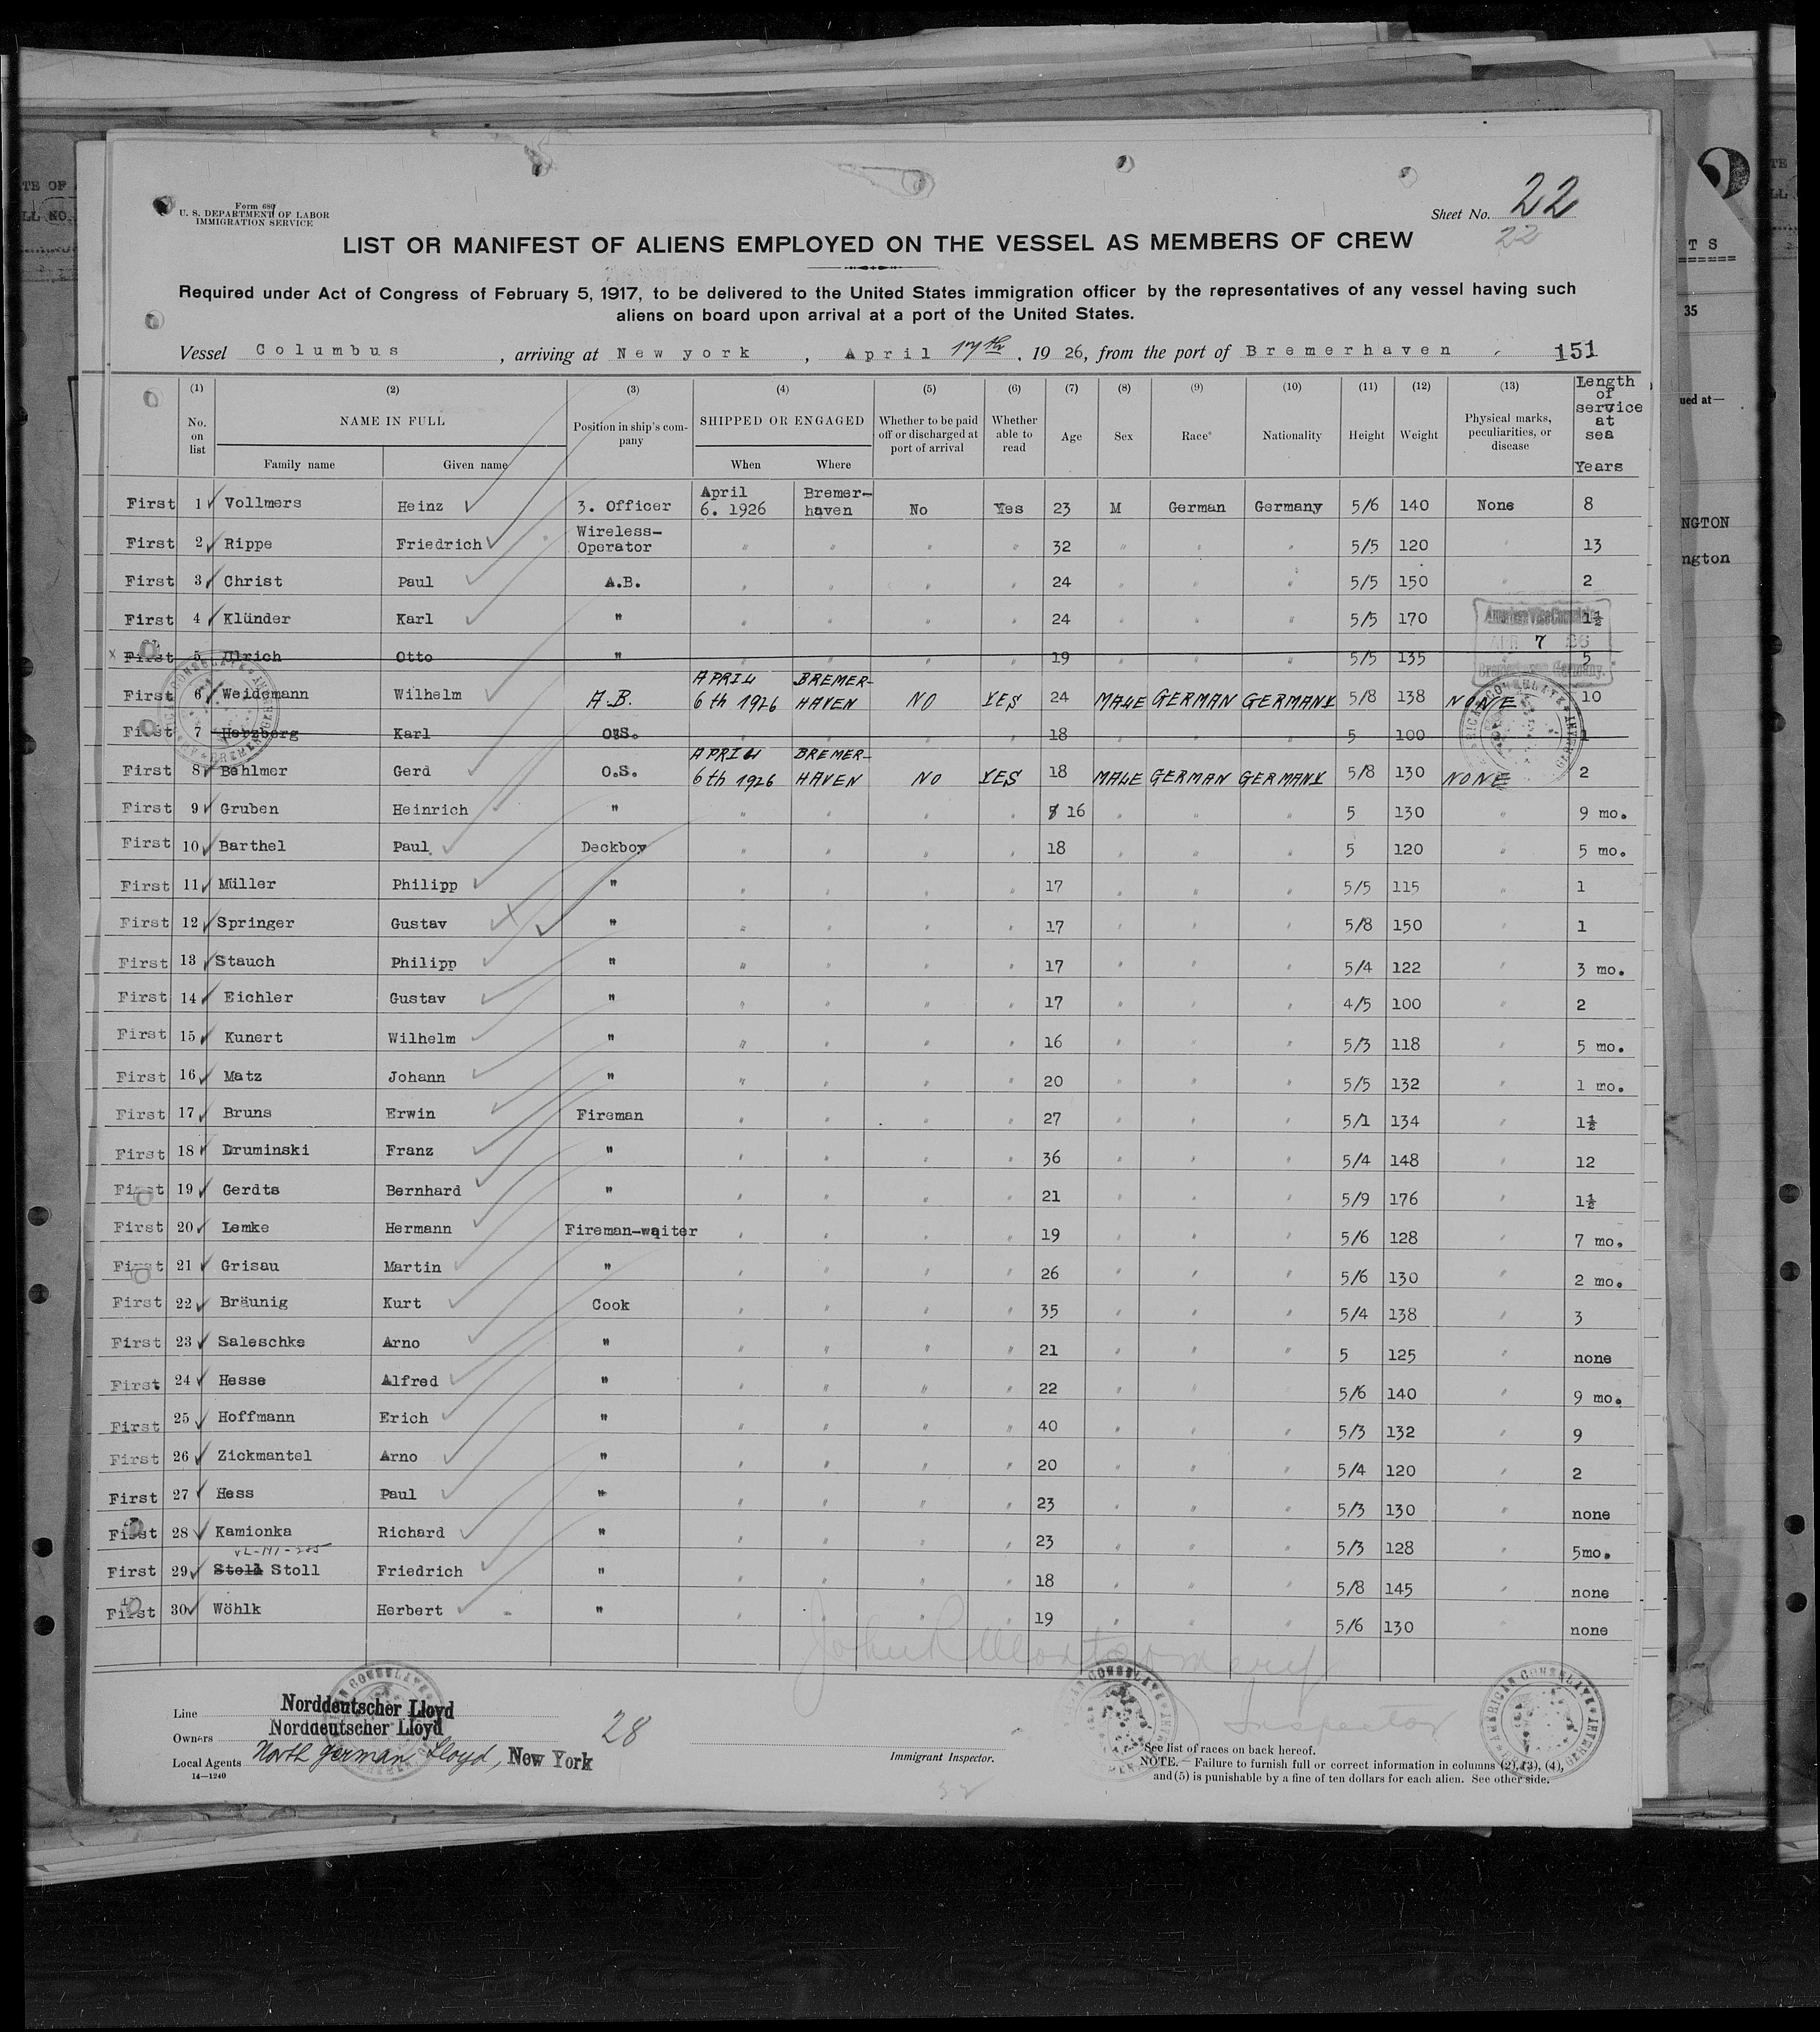 Form 680
U. S. DEPARTMENT OF LABOR
IMMIGRATION SERVICE
Sheet No. 22
22
LIST OR MANIFEST OF ALIENS EMPLOYED ON THE VESSEL AS MEMBERS OF CREW
Required under Act of Congress of February 5, 1917, to be delivered to the United States immigration officer by the representatives of any vessel having such
aliens on board upon arrival at a port of the United States.
Vessel Columbus, arriving at New york, April 17th, 1926, from the port of Bremerhaven 151
(1) (2) (3) (4) (5) (6) (7) (8) (9) (10) (11) (12) (13) Length of service at sea Years
No. on list NAME IN FULL Family name Given name Position in ship's company SHIPPED OR ENGAGED When Where Whether to be paid off or discharged at port of arrival Whether able to read Age Sex Race* Nationality Height Weight Physical marks, peculiarities, or disease
First 1 Vollmers Heinz 3. Officer April 6. 1926 Bremer-haven No Yes 23 M German Germany 5/6 140 None 8
First 2 Rippe Friedrich Wireless-Operator " " " " 32 " " " 5/5 120 " 13
First 3 Christ Paul A.B. " " " " 24 " " " 5/5 150 " 2
First 4 Klünder Karl " " " " " 24 " " " 5/5 170 1½
First 5 Ulrich Otto " " " " " 19 " " " 5/5 135 5
First 6 Weidemann Wilhelm A.B. APRIL 6th 1926 BREMER-HAVEN NO YES 24 MALE GERMAN GERMANY 5/8 138 NONE 10
First 7 Herzberg Karl O.S. " " " " 18 " " " 5 100 1
First 8 Behlmer Gerd O.S. APRIL 6th 1926 BREMER-HAVEN NO YES 18 MALE GERMAN GERMANY 5/8 130 NONE 2
First 9 Gruben Heinrich " " " " " 16 " " " 5 130 " 9 mo.
First 10 Barthel Paul Deckboy " " " " 18 " " " 5 120 " 5 mo.
First 11 Müller Philipp " " " " " 17 " " " 5/5 115 " 1
First 12 Springer Gustav " " " " " 17 " " " 5/8 150 " 1
First 13 Stauch Philipp " " " " " 17 " " " 5/4 122 " 3 mo.
First 14 Eichler Gustav " " " " " 17 " " " 4/5 100 " 2
First 15 Kunert Wilhelm " " " " " 16 " " " 5/3 118 " 5 mo.
First 16 Matz Johann " " " " " 20 " " " 5/5 132 " 1 mo.
First 17 Bruns Erwin Fireman " " " " 27 " " " 5/1 134 " 1½
First 18 Druminski Franz " " " " " 36 " " " 5/4 148 " 12
First 19 Gerdts Bernhard " " " " " 21 " " " 5/9 176 " 1½
First 20 Lemke Hermann Fireman-waiter " " " " 19 " " " 5/6 128 " 7 mo.
First 21 Grisau Martin " " " " " 26 " " " 5/6 130 " 2 mo.
First 22 Bräunig Kurt Cook " " " " 35 " " " 5/4 138 " 3
First 23 Saleschke Arno " " " " " 21 " " " 5 125 " none
First 24 Hesse Alfred " " " " " 22 " " " 5/6 140 " 9 mo.
First 25 Hoffmann Erich " " " " " 40 " " " 5/3 132 " 9
First 26 Zickmantel Arno " " " " " 20 " " " 5/4 120 " 2
First 27 Hess Paul " " " " " 23 " " " 5/3 130 " none
First 28 Kamionka Richard " " " " " 23 " " " 5/3 128 " 5mo.
First 29 Stoll Friedrich " " " " " 18 " " " 5/8 145 " none
First 30 Wöhlk Herbert " " " " " 19 " " " 5/6 130 " none
John R Montgomery
Inspector
Line Norddeutscher Lloyd
Owners Norddeutscher Lloyd
Local Agents North German Lloyd, New York
28
14—1240
Immigrant Inspector.
See list of races on back hereof.
NOTE.—Failure to furnish full or correct information in columns (2), (3), (4),
and (5) is punishable by a fine of ten dollars for each alien. See other side.